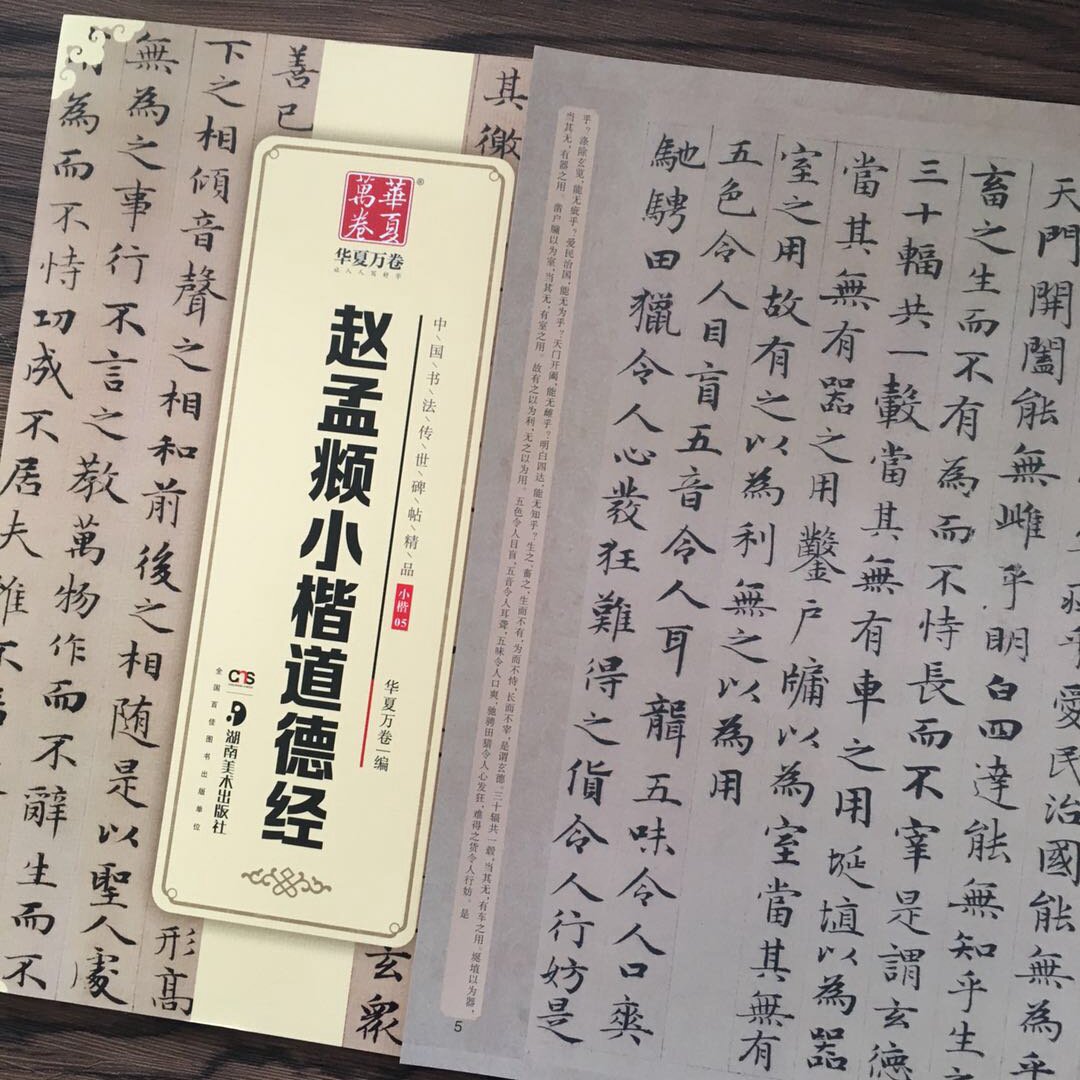 其徼
玄衆
善已
形高
下之相傾音聲之相和前後之相随是以聖人處
無為之事行不言之教萬物作而不辭生而不
為而不恃功成不居夫惟不
萬華
卷夏
®
华夏万卷
让人人写好字
中\国\书\法\传\世\碑\帖\精\品
小楷05
华夏万卷 编
赵孟頫小楷道德经
湖南美术出版社
全国百佳图书出版单位
乎愛民治國能無為乎
天門開闔能無雌乎明白四達能無知乎生之
畜之生而不有為而不恃長而不宰是謂玄德
三十輻共一轂當其無有車之用埏埴以為器
當其無有器之用鑿户牖以為室當其無有
室之用故有之以為利無之以為用
五色令人目盲五音令人耳聾五味令人口爽
馳騁田獵令人心發狂難得之貨令人行妨是
乎？涤除玄览，能无疵乎？爱民治国，能无为乎？天门开阖，能无雌乎？明白四达，能无知乎？生之，畜之，生而不有，为而不恃，长而不宰，是谓玄德。三十辐共一毂，当其无，有车之用。埏埴以为器，
当其无，有器之用。凿户牖以为室，当其无，有室之用。故有之以为利，无之以为用。五色令人目盲，五音令人耳聋，五味令人口爽，驰骋田猎令人心发狂，难得之货令人行妨。是
5